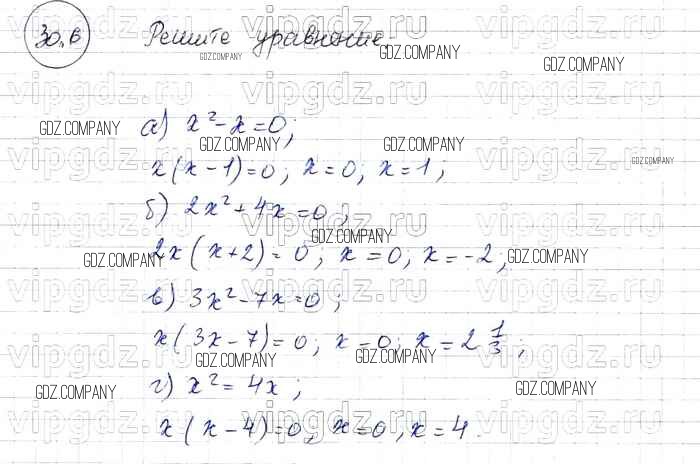 30.6 Решите уравнение.
а) x² - x = 0;
x(x-1)=0; x=0; x=1;
б) 2x² + 4x = 0;
2x(x+2)=0; x=0; x=-2;
в) 3x² - 7x = 0;
x(3x-7)=0; x=0; x=2 1/3;
г) x² = 4x;
x(x-4)=0, x=0, x=4.
vipgdz.ru
GDZ.COMPANY